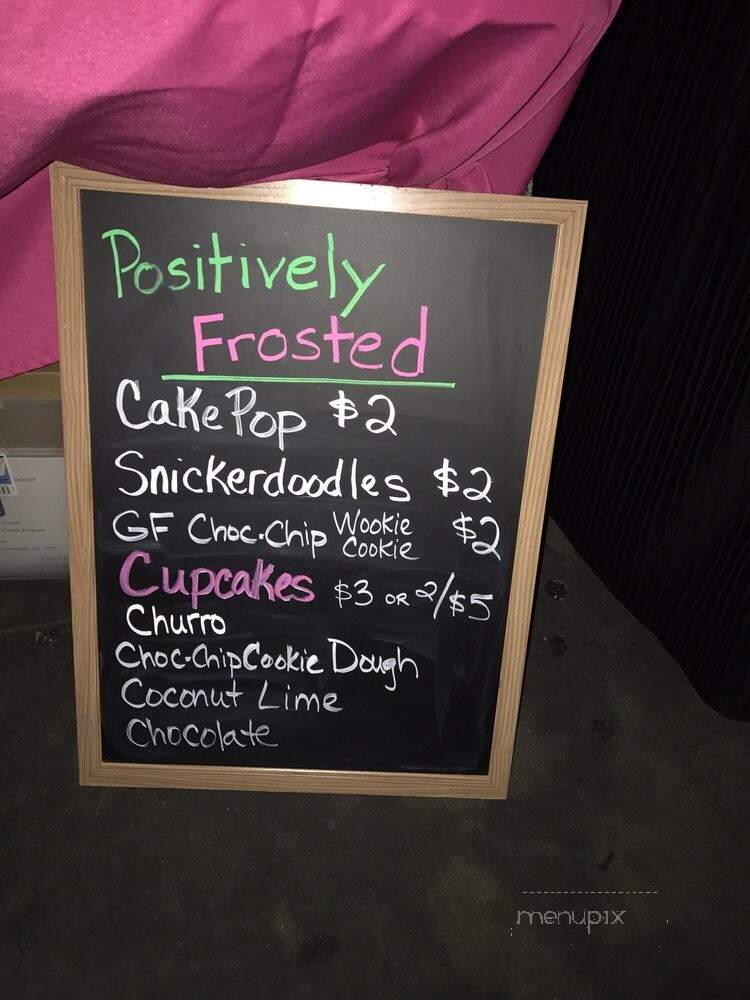 Positively
Frosted
Cake Pop $2
Snickerdoodles $2
GF Choc.Chip Wookie Cookie $2
Cupcakes $3 OR 2/$5
Churro
Choc-Chip Cookie Dough
Coconut Lime
Chocolate
menupix